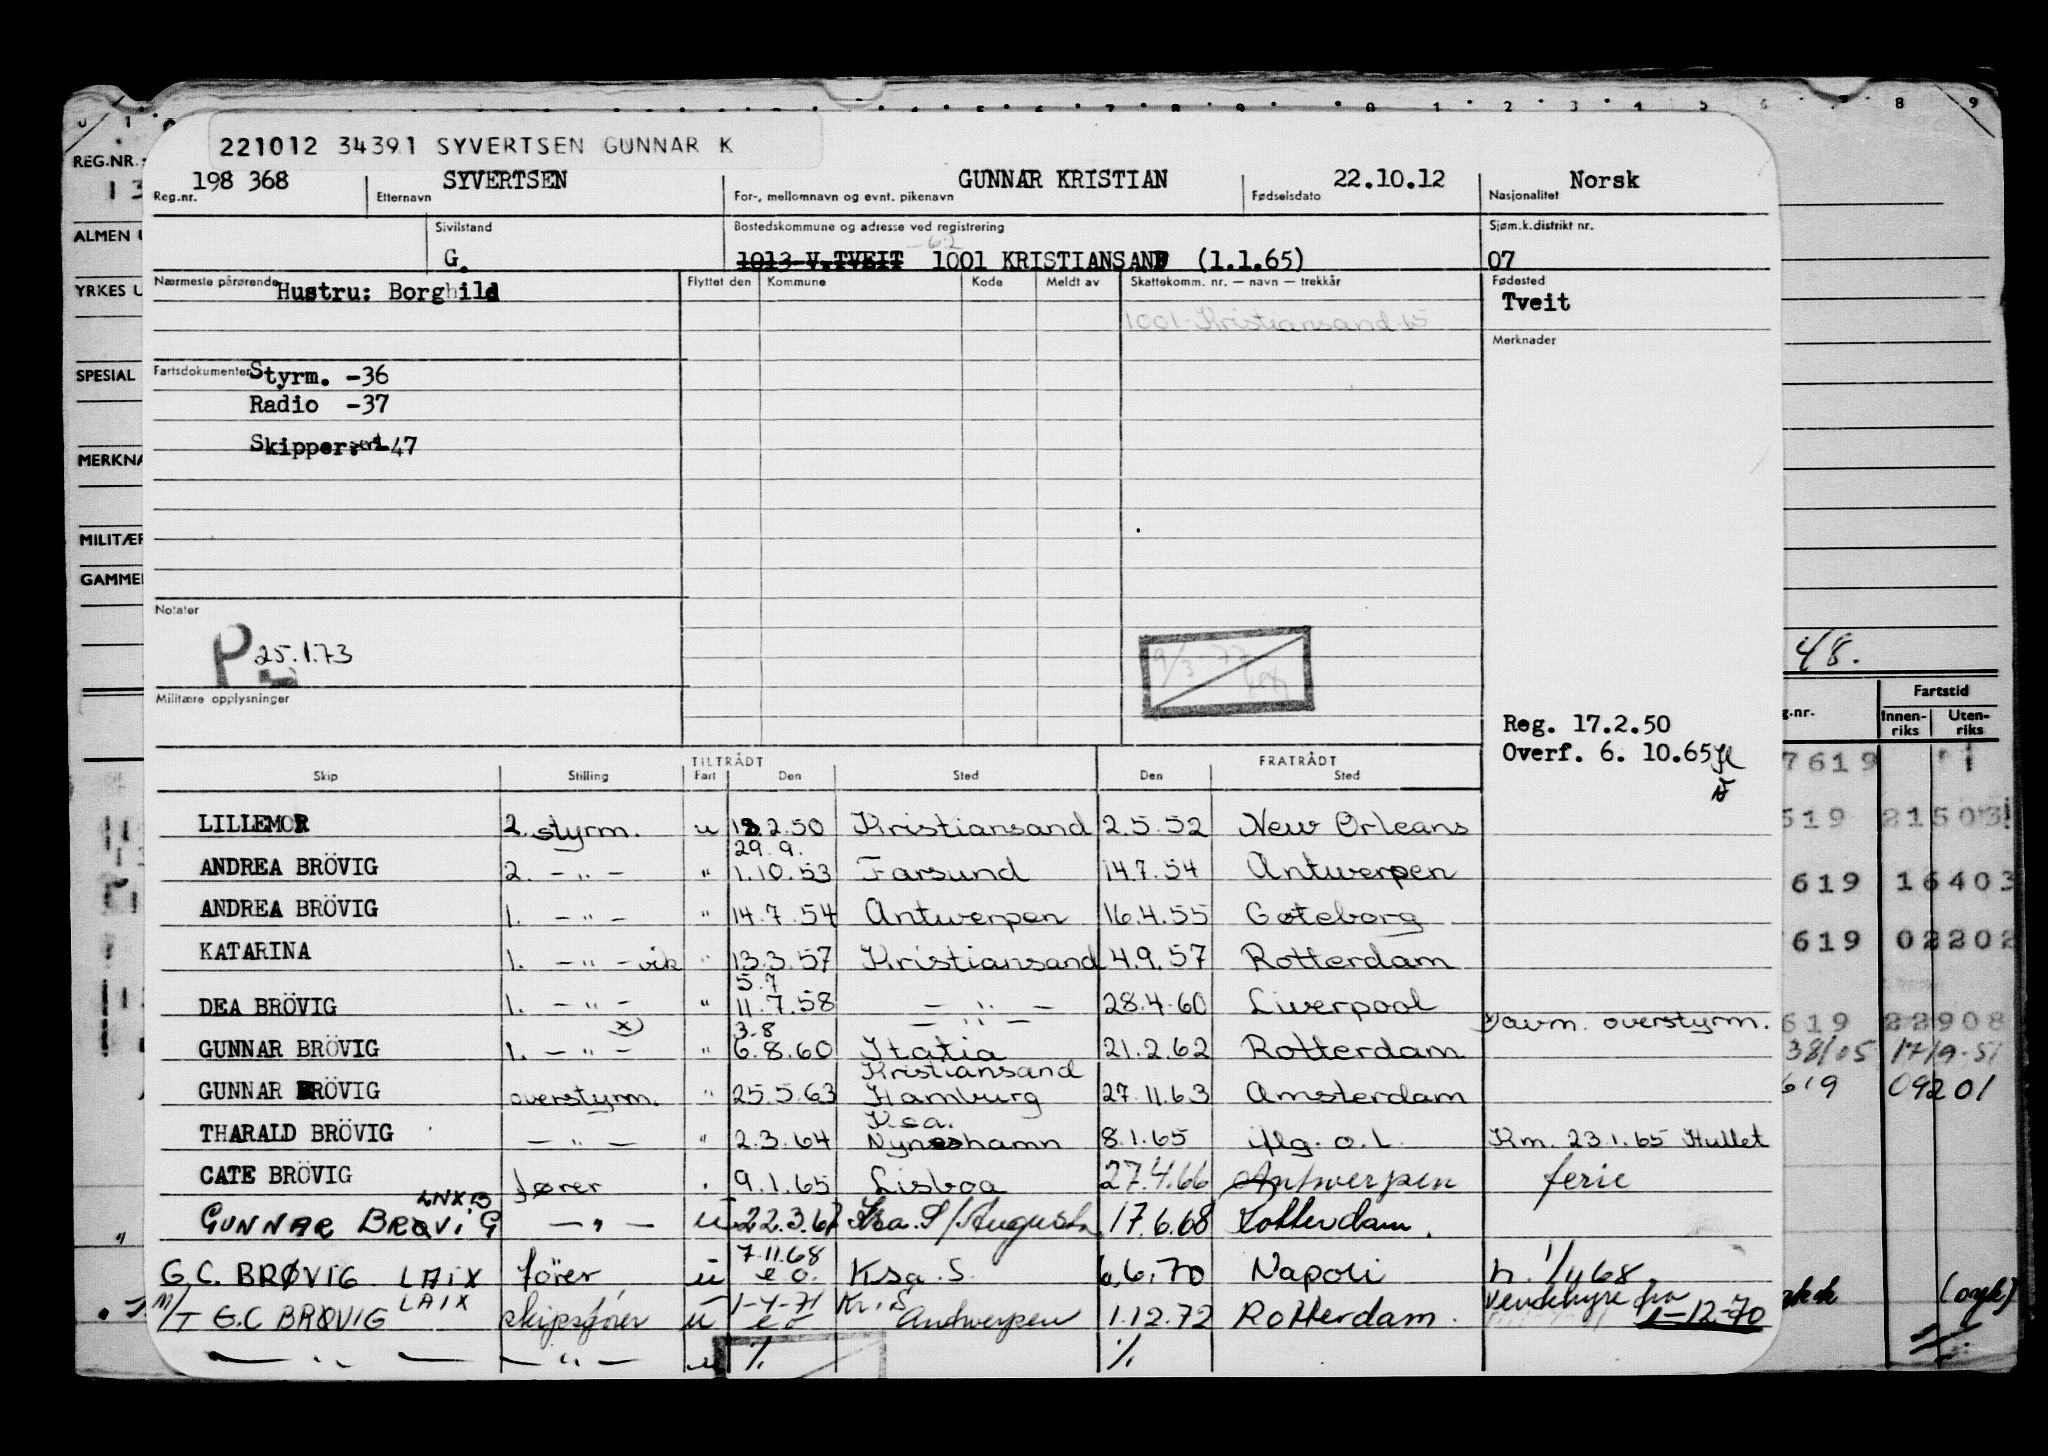 221012 34391 SYVERTSEN GUNNAR K
REG.NR.:
198 368 SYVERTSEN GUNNAR KRISTIAN 22.10.12 Norsk
Reg.nr. Etternavn For-, mellomnavn og evnt. pikenavn Fødselsdato Nasjonalitet
ALMEN
Sivilstand Bostedskommune og adresse ved registrering Sjøm.k.distrikt nr.
G. 1013 V.TVEIT 1001 KRISTIANSAND (1.1.65) 07
YRKES U
Nærmeste pårørende Hustru: Borghild Flyttet den Kommune Kode Meldt av Skattekomm. nr. — navn — trekkår Fødested
Tveit
1001-Kristiansand-65
Merknader
SPESIAL
Fartsdokumenter Styrm. -36
Radio -37
MERKNA
Skipper: -47
MILITÆR
GAMMEL
Notater
P 25.1.73
9/3-77
48.
Militære opplysninger
Reg. 17.2.50
Overf. 6. 10.65
g.nr. Fartstid
Innen-riks Uten-riks
TILTRÅDT FRATRÅDT
Skip Stilling Fart Den Sted Den Sted
7619
LILLEMOR 2. styrm. u 18.2.50 Kristiansand 2.5.52 New Orleans
619 21503
29.9.
ANDREA BRÖVIG 2. - " - " 1.10.53 Farsund 14.7.54 Antwerpen
619 16403
ANDREA BRÖVIG 1. - " - " 14.7.54 Antwerpen 16.4.55 Gøteborg
619 02202
KATARINA 1. - " - vik " 13.3.57 Kristiansand 4.9.57 Rotterdam
5.7
DEA BRÖVIG 1. - " - " 11.7.58 - " - 28.4.60 Liverpool
x) 3.8 - " - x) avm. overstyrm.
619 22908
GUNNAR BRÖVIG 1. - " - " 6.8.60 Itatia 21.2.62 Rotterdam
38/05 17/9-51
Kristiansand
GUNNAR BRÖVIG overstyrm. " 25.5.63 Hamburg 27.11.63 Amsterdam
619 09201
Ksa.
THARALD BRÖVIG - " - " 2.3.64 Nyneshamn 8.1.65 iflg. o.l. Km. 23.1.65 Hullet
CATE BRÖVIG fører " 9.1.65 Lisboa 27.4.66 Antwerpen ferie
LNXB
GUNNAR BRØVIG - " - u 22.3.67 Ksa. S/Augusta 17.6.68 Rotterdam.
7.11.68
G.C. BRØVIG LAIX fører u e o. Ksa. S. 6.6.70 Napoli
LAIX 1-4-71 Kr.S. Ventehyre fra
M/T G.C BRØVIG skipsfører u e o Antwerpen 1.12.72 Rotterdam. 1-12-70
- " - - " - u % %